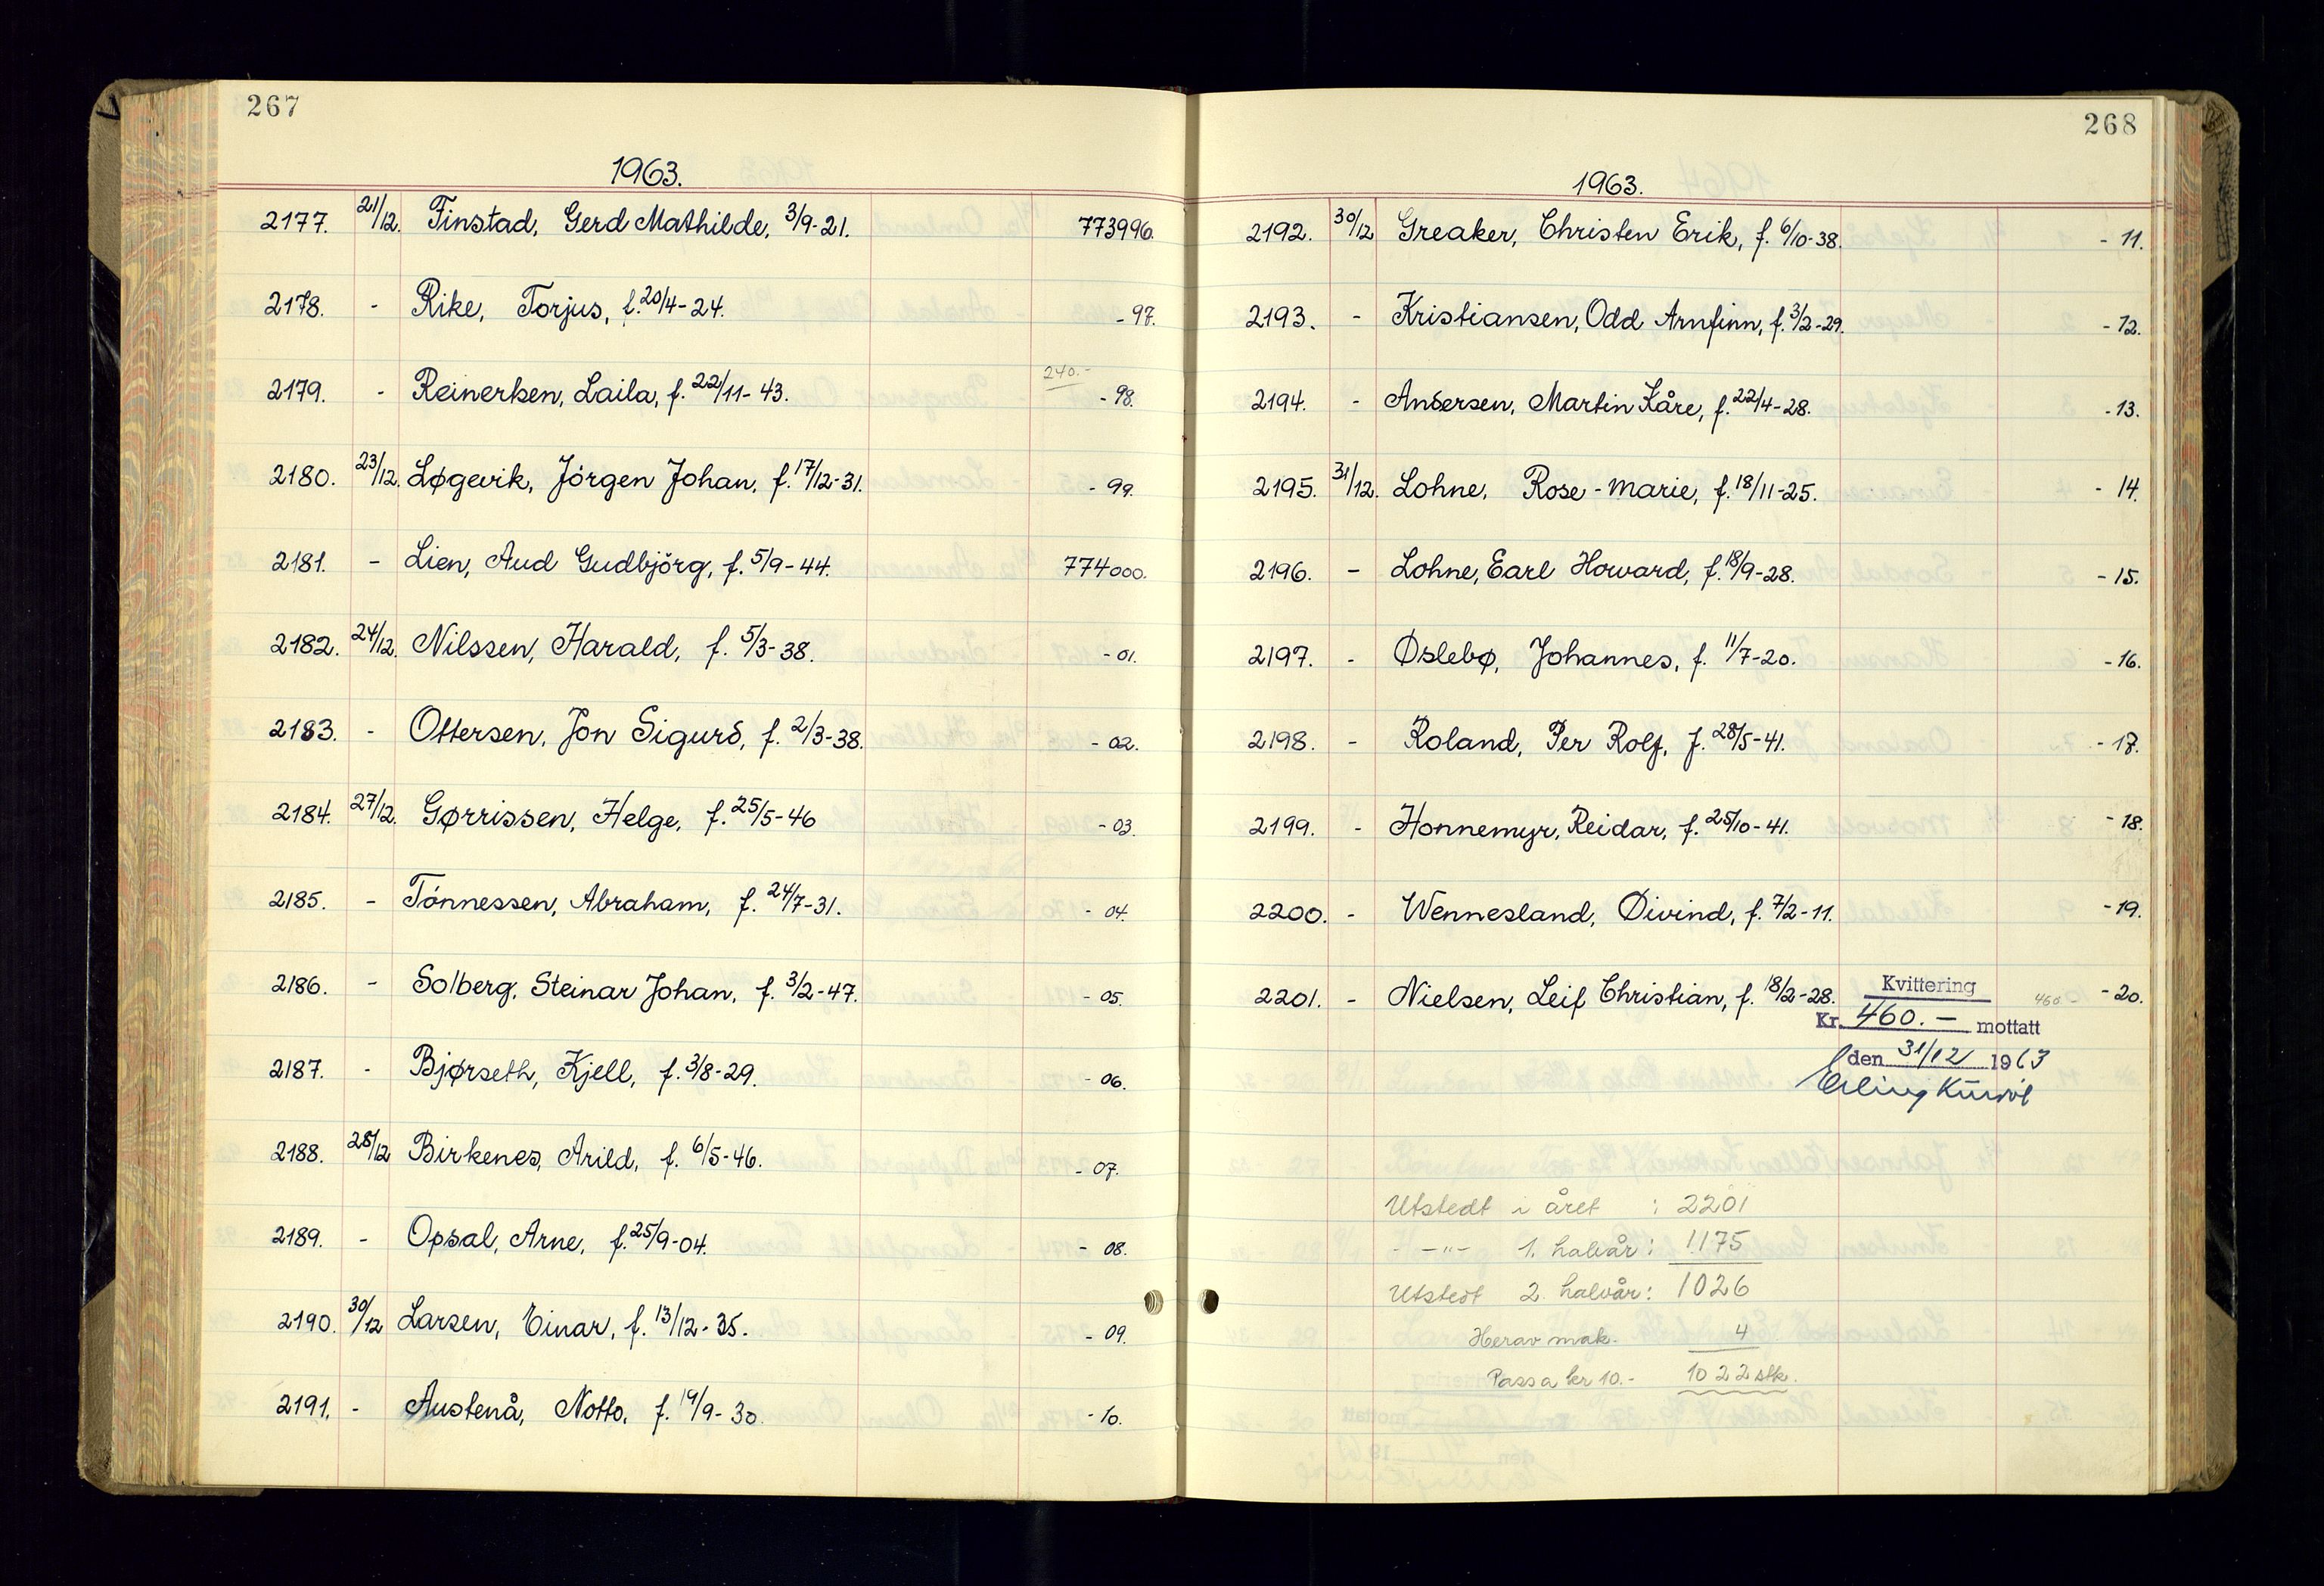 267
1963.
2177. 21/12. Finstad, Gerd Mathilde, 3/9-21. 773996.
2178. - Rike, Torjus, f. 20/4-24. -97.
240.-
2179. - Reinertsen, Laila, f. 22/11-43. -98.
2180. 23/12. Løgevik, Jörgen Johan, f. 17/12-31. -99.
2181. - Lien, Aud Gudbjörg, f. 5/9-44. 774000.
2182. 24/12. Nilssen, Harald, f. 5/3-38. -01.
2183. - Ottersen, Jon Sigurd, f. 2/3-38. -02.
2184. 27/12. Gørrissen, Helge, f. 25/5-46 -03.
2185. - Tönnessen, Abraham, f. 24/7-31. -04.
2186. - Solberg, Steinar Johan, f. 3/2-47. -05.
2187. - Bjørseth, Kjell, f. 3/8-29. -06.
2188. 28/12 Birkenes, Arild, f. 6/5-46. -07.
2189. - Opsal, Arne, f. 25/9-04. -08.
2190. 30/12 Larsen, Einar, f. 13/12-35. -09.
2191. - Austenå, Notto, f. 19/9-30. -10.
268
1963.
2192. 30/12 Greaker, Christen Erik, f. 6/10-38. -11.
2193. - Kristiansen, Odd Arnfinn, f. 3/2-29. -12.
2194. - Andersen, Martin Kåre, f. 22/4-28. -13.
2195. 31/12. Lohne, Rose-Marie, f. 18/11-25. -14.
2196. - Lohne, Earl Howard, f. 18/9-28. -15.
2197. - Øslebø, Johannes, f. 11/7-20. -16.
2198. - Roland, Per Rolf, f. 28/5-41. -17.
2199. - Honnemyr, Reidar, f. 25/10-41. -18.
2200. - Wennesland, Øivind, f. 7/2-11. -19.
2201. - Nielsen, Leif Christian, f. 18/2-28. 460.- -20.
Kvittering
Kr. 460.- mottatt
den 31/12 1963
Erling
Utstedt i året : 2201
- -"- 1. halvår: 1175
Utstedt 2. halvår: 1026
Herav mak. 4
Passa kr 10.- 1022 stk.